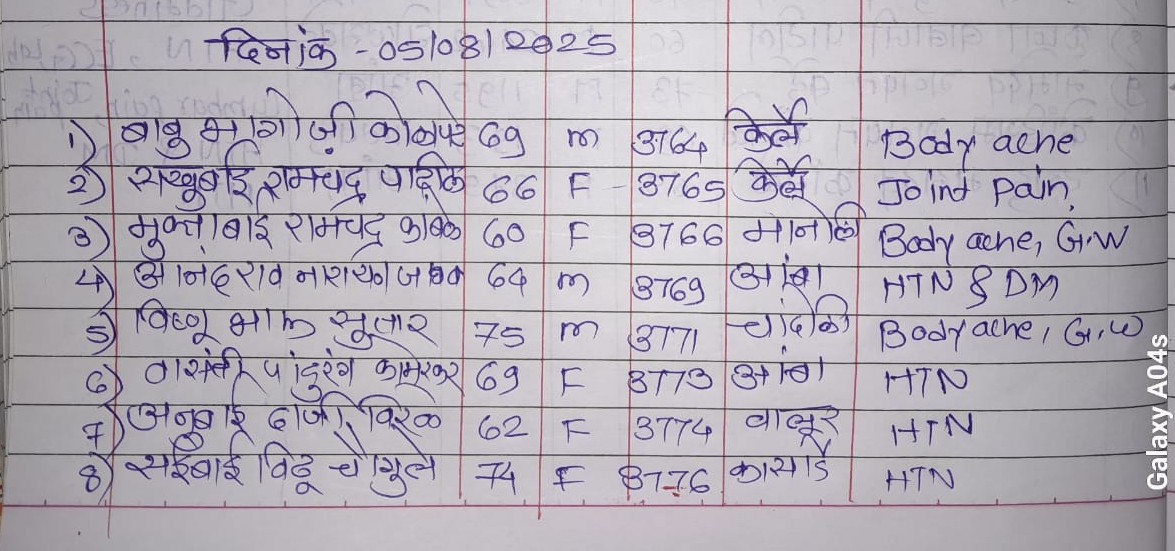 दिनांक - 05/08/2025
1) बाबु भागोजी कोळापरे 69 m 3764 केर्ले Body ache
2) सखुबाई रामचंद्र पाटील 66 F - 3765 केर्ले Joint Pain,
3) मुक्ताबाई रामचंद्र कांबळे 60 F 3766 मानोली Body ache, G.W
4) आनंदराव नारायण जाधव 64 m 3769 आंबा HTN & DM
5) विष्णू भाऊ सुतार 75 m 3771 चांदोली Body ache, G.W
6) वासंती पांडुरंग कामेरकर 69 F 3773 आंबा HTN
7) अनुबाई दाजी विरळ 62 F 3774 वालूर HTN
8) सईबाई विठू चौगुले 74 F 3776 कासार्डे HTN
Galaxy A04s